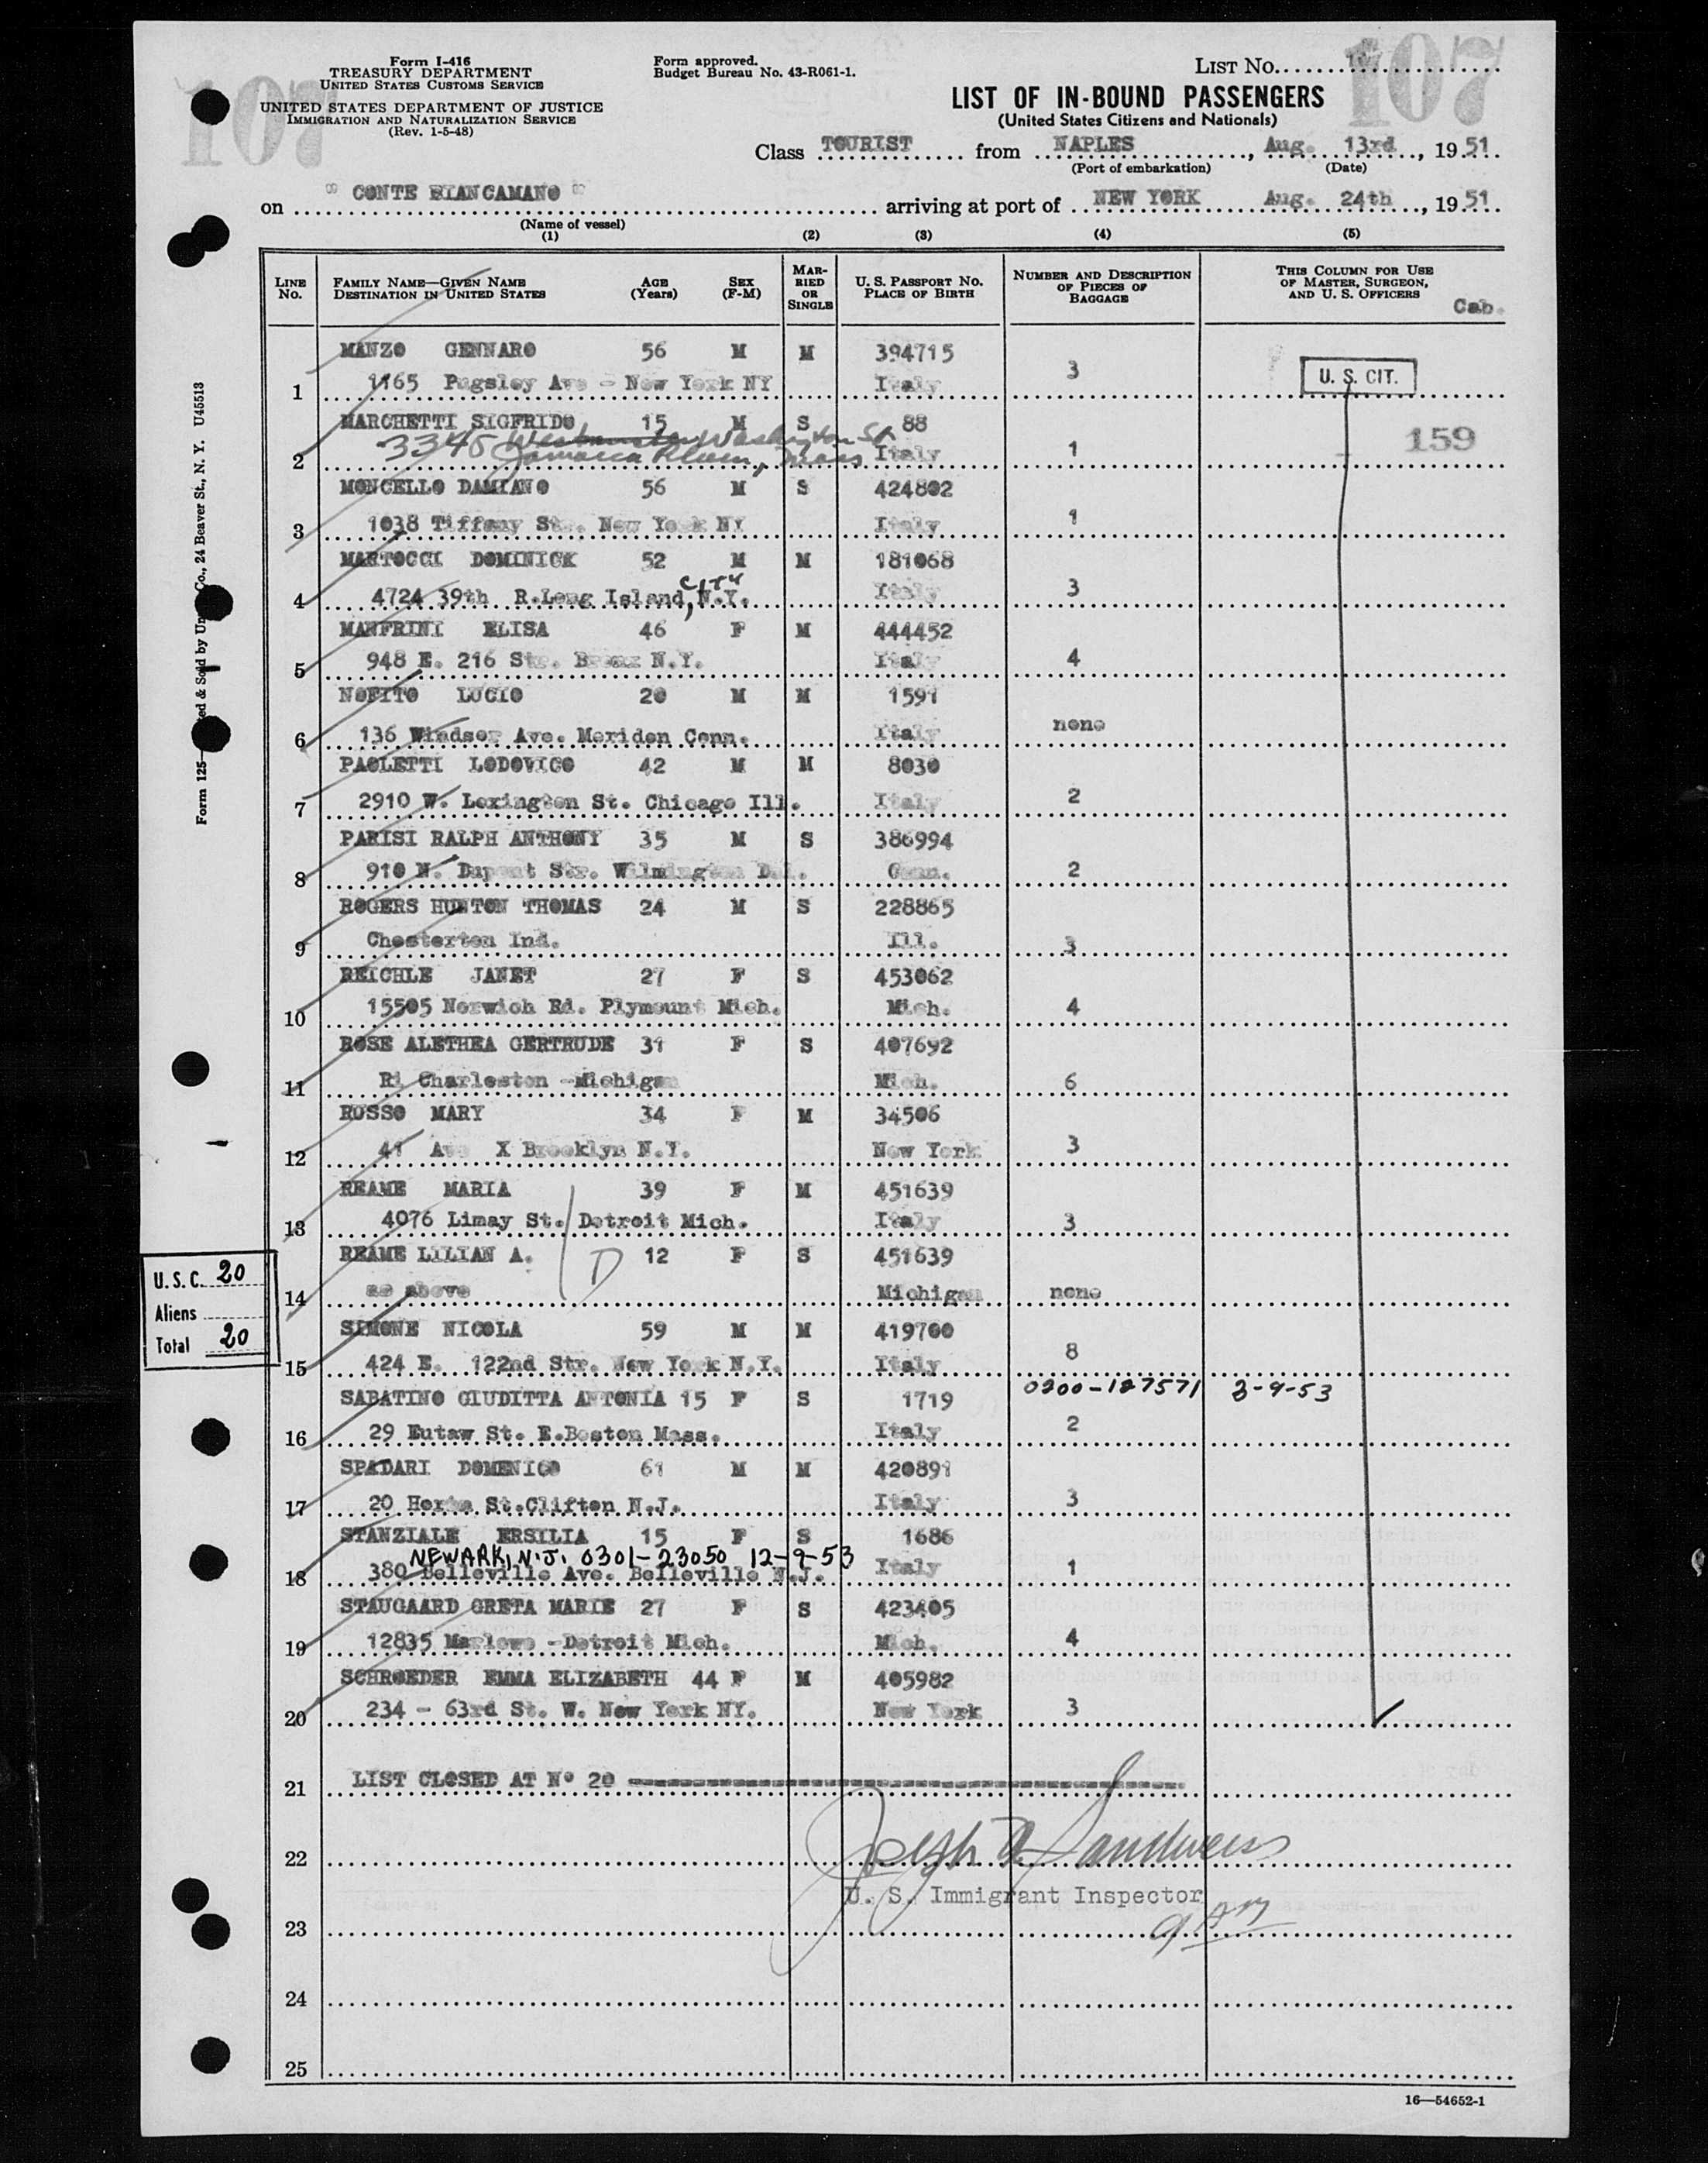 107
107
Form I-416
TREASURY DEPARTMENT
UNITED STATES CUSTOMS SERVICE
UNITED STATES DEPARTMENT OF JUSTICE
IMMIGRATION AND NATURALIZATION SERVICE
(Rev. 1-5-48)
Form approved.
Budget Bureau No. 43-R061-1.
LIST NO.
LIST OF IN-BOUND PASSENGERS
(United States Citizens and Nationals)
Class TOURIST from NAPLES, Aug. 13rd, 1951
(Port of embarkation) (Date)
on " CONTE BIANCAMANO " arriving at port of NEW YORK Aug. 24th, 1951
(Name of vessel)
(1) (2) (3) (4) (5)
LINE No. FAMILY NAME—GIVEN NAME DESTINATION IN UNITED STATES AGE (Years) SEX (F-M) MARRIED OR SINGLE U. S. PASSPORT NO. PLACE OF BIRTH NUMBER AND DESCRIPTION OF PIECES OF BAGGAGE THIS COLUMN FOR USE OF MASTER, SURGEON, AND U. S. OFFICERS
Cab.
MANZO GENNARO 56 M M 394715
1 1165 Pugsley Ave - New York NY Italy 3 U. S. CIT.
MARCHETTI SIGFRIDO 15 M S 88
3345 Westminster Washington St
2 Jamaica Plain, Mass Italy 1 159
MONCELLO DAMIANO 56 M S 424802
3 1038 Tiffany St.. New York NY Italy 1
MARTOCCI DOMINICK 52 M M 181068
CITY
4 4724 39th R.Long Island, N.Y. Italy 3
MANFRINI ELISA 46 F M 444452
5 948 E. 216 Str. Bronx N.Y. Italy 4
NOFITO LUCIO 20 M M 1591
6 136 Windsor Ave. Meriden Conn. Italy none
PAOLETTI LODOVICO 42 M M 8030
7 2910 W. Lexington St. Chicago Ill. Italy 2
PARISI RALPH ANTHONY 35 M S 386994
8 910 N. Dupont Str. Wilmington Del. Conn. 2
ROGERS HUNTON THOMAS 24 M S 228865
9 Chesterton Ind. Ill. 3
REICHLE JANET 27 F S 453062
10 15505 Norwich Rd. Plymount Mich. Mich. 4
ROSE ALETHEA GERTRUDE 31 F S 407692
11 Ri Charleston -Michigan Mich. 6
ROSSO MARY 34 F M 34506
12 41 Ave X Brooklyn N.Y. New York 3
REAME MARIA 39 F M 451639
13 4076 Limay St. Detroit Mich. Italy 3
REAME LILIAN A. 12 F S 451639
D
14 as above Michigan none
U.S.C. 20
Aliens
Total 20
SIMONE NICOLA 59 M M 419700
15 424 E. 122nd Str. New York N.Y. Italy 8
0200-127571 3-9-53
SABATINO GIUDITTA ANTONIA 15 F S 1719
16 29 Eutaw St. E.Boston Mass. Italy 2
SPADARI DOMENICO 61 M M 420891
17 20 Horma St.Clifton N.J. Italy 3
STANZIALE ERSILIA 15 F S 1686
NEWARK, N.J. 0301-23050 12-9-53
18 380 Belleville Ave. Belleville N.J. Italy 1
STAUGAARD GRETA MARIE 27 F S 423405
19 12835 Marlowe -Detroit Mich. Mich. 4
SCHROEDER EMMA ELIZABETH 44 F M 405982
20 234 - 63rd St. W. New York NY. New York 3
21 LIST CLOSED AT No 20
22 Joseph
U. S. Immigrant Inspector
23
24
25
16—54652-1
Form 125— ed & Sold by Un Co., 24 Beaver St., N. Y. U45513